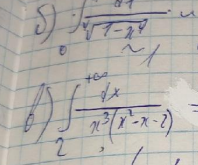 б) ∫₀ dx/√(1-x⁴) ~
~ 1
в) ∫₂^{+∞} dx/(x³(x²-x-2)) =